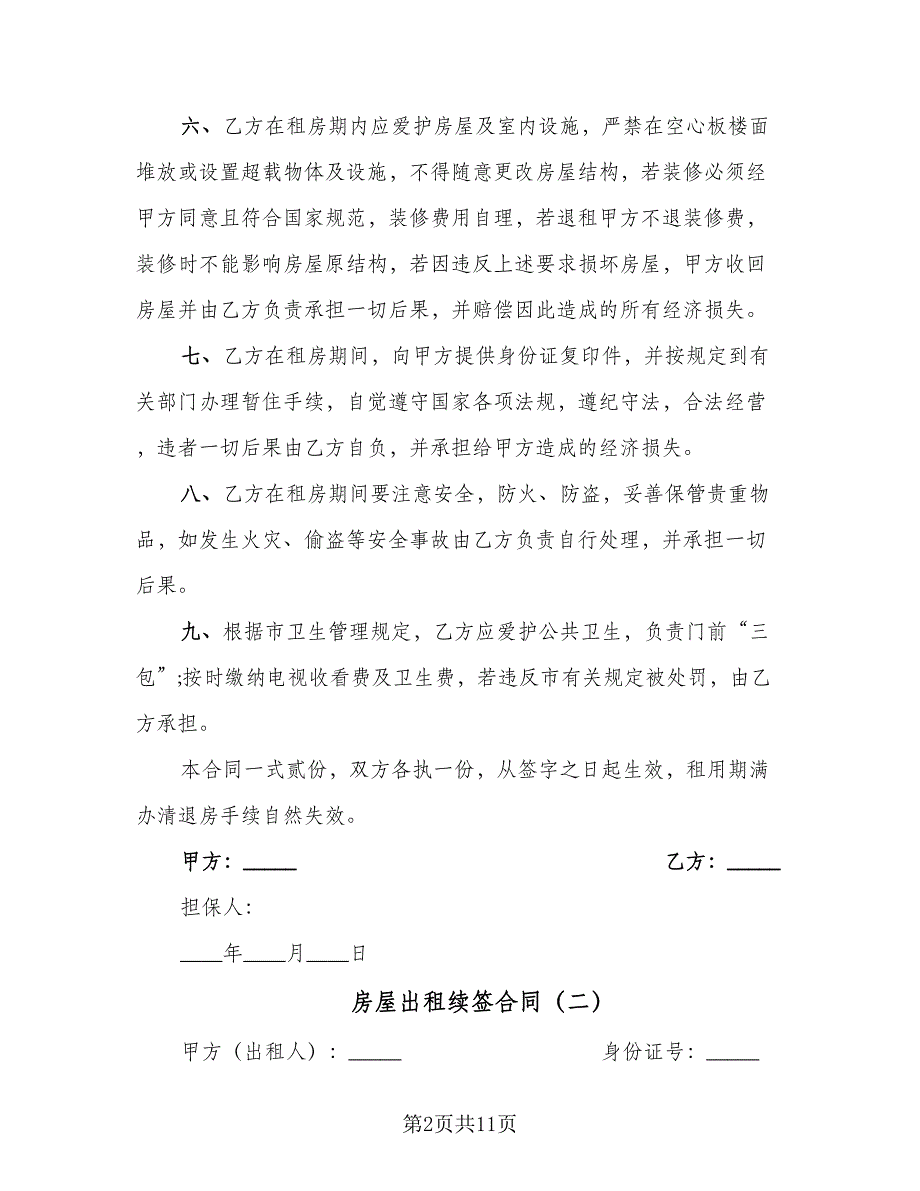 六、乙方在租房期内应爱护房屋及室内设施，严禁在空心板楼面
堆放或设置超载物体及设施，不得随意更改房屋结构，若装修必须经
甲方同意且符合国家规范，装修费用自理，若退租甲方不退装修费，
装修时不能影响房屋原结构，若因违反上述要求损坏房屋，甲方收回
房屋并由乙方负责承担一切后果，并赔偿因此造成的所有经济损失。
七、乙方在租房期间，向甲方提供身份证复印件，并按规定到有
关部门办理暂住手续，自觉遵守国家各项法规，遵纪守法，合法经营
，违者一切后果由乙方自负，并承担给甲方造成的经济损失。
八、乙方在租房期间要注意安全，防火、防盗，妥善保管贵重物
品，如发生火灾、偷盗等安全事故由乙方负责自行处理，并承担一切
后果。
九、根据市卫生管理规定，乙方应爱护公共卫生，负责门前“三
包”;按时缴纳电视收看费及卫生费，若违反市有关规定被处罚，由乙
方承担。
本合同一式贰份，双方各执一份，从签字之日起生效，租用期满
办清退房手续自然失效。
甲方：_____ 乙方：_____
担保人：
____年____月____日
房屋出租续签合同（二）
甲方（出租人）：_____ 身份证号：_____
第2页共11页